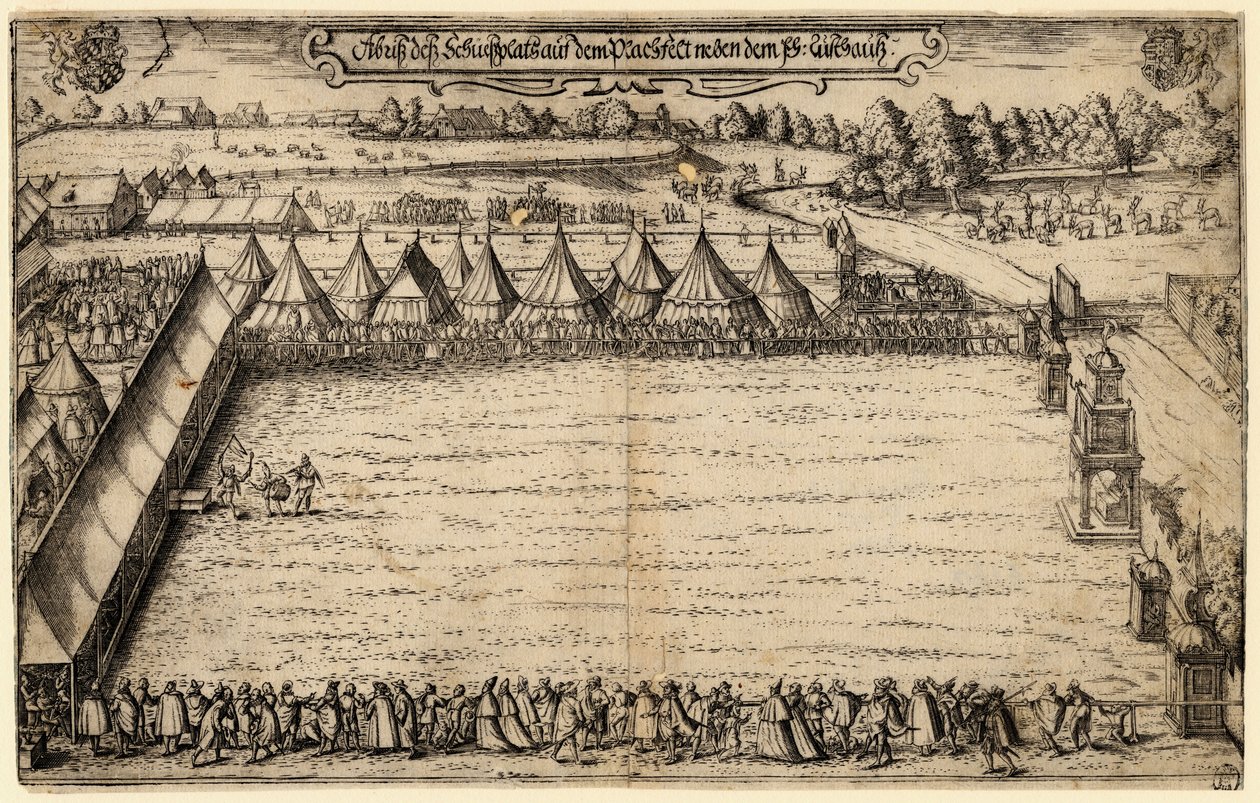 Abriß deß Schiesplatz auf dem Plachfelt neben dem Fh: Lusthauß.